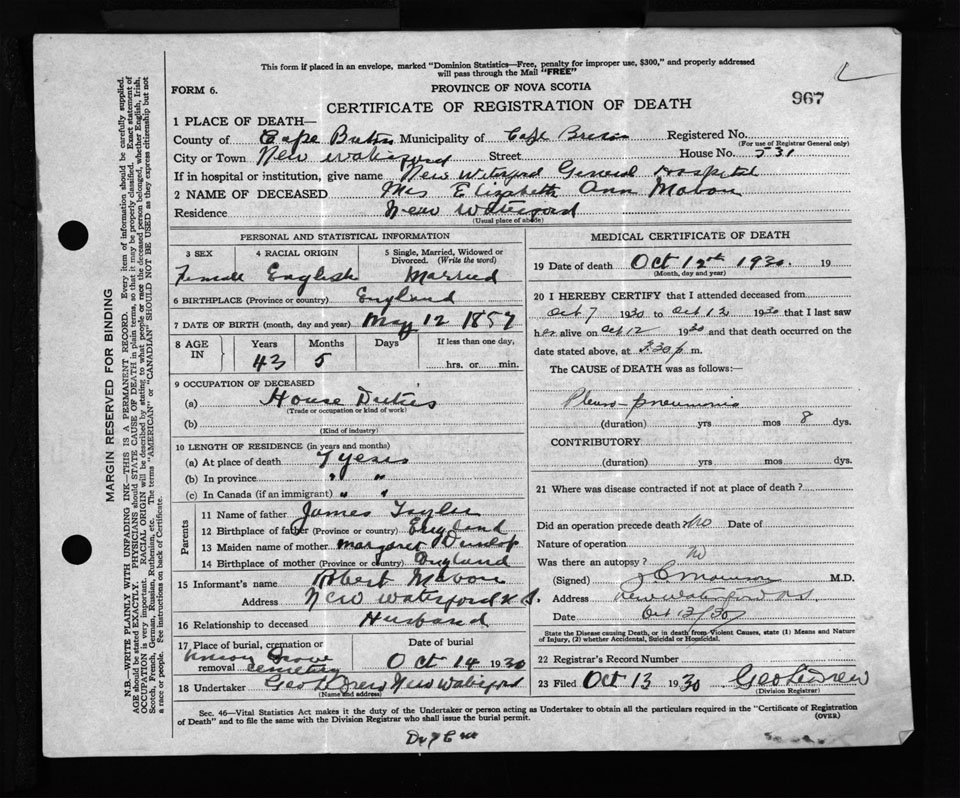 This form if placed in an envelope, marked "Dominion Statistics—Free, penalty for improper use, $300," and properly addressed
will pass through the Mail "FREE"
FORM 6.
PROVINCE OF NOVA SCOTIA
967
CERTIFICATE OF REGISTRATION OF DEATH
1 PLACE OF DEATH—
County of Cape Breton Municipality of Cape Breton Registered No.
(For use of Registrar General only)
City or Town New Waterford Street House No. 531
If in hospital or institution, give name New Waterford General Hospital
2 NAME OF DECEASED Mrs Elizabeth Ann Mabon
Residence New Waterford
(Usual place of abode)
PERSONAL AND STATISTICAL INFORMATION
3 SEX 4 RACIAL ORIGIN 5 Single, Married, Widowed or Divorced. (Write the word)
Female English Married
6 BIRTHPLACE (Province or country) England
7 DATE OF BIRTH (month, day and year) May 12 1857
8 AGE IN Years Months Days If less than one day,
43 5 hrs. or min.
9 OCCUPATION OF DECEASED
(a) House Duties
(Trade or occupation or kind of work)
(b)
(Kind of industry)
10 LENGTH OF RESIDENCE (in years and months)
(a) At place of death 7 years
(b) In province " "
(c) In Canada (if an immigrant) " "
Parents
11 Name of father James
12 Birthplace of father (Province or country) England
13 Maiden name of mother Margaret Dunlop
14 Birthplace of mother (Province or country) England
15 Informant's name Robert Mabon
Address New Waterford N.S.
16 Relationship to deceased Husband
17 Place of burial, cremation or removal Date of burial
Grove Cemetery Oct 14 1930
18 Undertaker Geo H Drew New Waterford
(Name and address)
MEDICAL CERTIFICATE OF DEATH
19 Date of death Oct 12th 1930. 19
(Month, day and year)
20 I HEREBY CERTIFY that I attended deceased from
Oct 7 1930 to Oct 12 1930 that I last saw
her alive on Oct 12 1930 and that death occurred on
date stated above, at 3.30 p m.
The CAUSE of DEATH was as follows:—
Pleuro-pneumonia
(duration) yrs mos 8 dys.
CONTRIBUTORY
(duration) yrs mos dys.
21 Where was disease contracted if not at place of death?
Did an operation precede death No Date of
Nature of operation
Was there an autopsy? No
(Signed) M.D.
Address New Waterford NS
Date Oct 13/30
State the Disease causing Death, or in death from Violent Causes, state (1) Means and Nature
of Injury, (2) whether Accidental, Suicidal or Homicidal.
22 Registrar's Record Number
23 Filed Oct 13 1930 Geo H Drew
(Division Registrar)
Sec. 46—Vital Statistics Act makes it the duty of the Undertaker or person acting as Undertaker to obtain all the particulars required in the "Certificate of Registration
of Death" and to file the same with the Division Registrar who shall issue the burial permit.
(OVER)
MARGIN RESERVED FOR BINDING
N.B.—WRITE PLAINLY WITH UNFADING INK—THIS IS A PERMANENT RECORD. Every item of information should be carefully supplied.
AGE should be stated EXACTLY. PHYSICIANS should STATE CAUSE OF DEATH in plain terms, so that it may be properly classified. Exact statement of
OCCUPATION is very important. RACIAL ORIGIN will be described by stating to what people or race the deceased person belonged, whether English, Irish,
Scotch, French, German, Russian, Ruthenian, etc. The terms "AMERICAN" or "CANADIAN" SHOULD NOT BE USED as they express citizenship but not
a race or people. See instructions on back of Certificate.